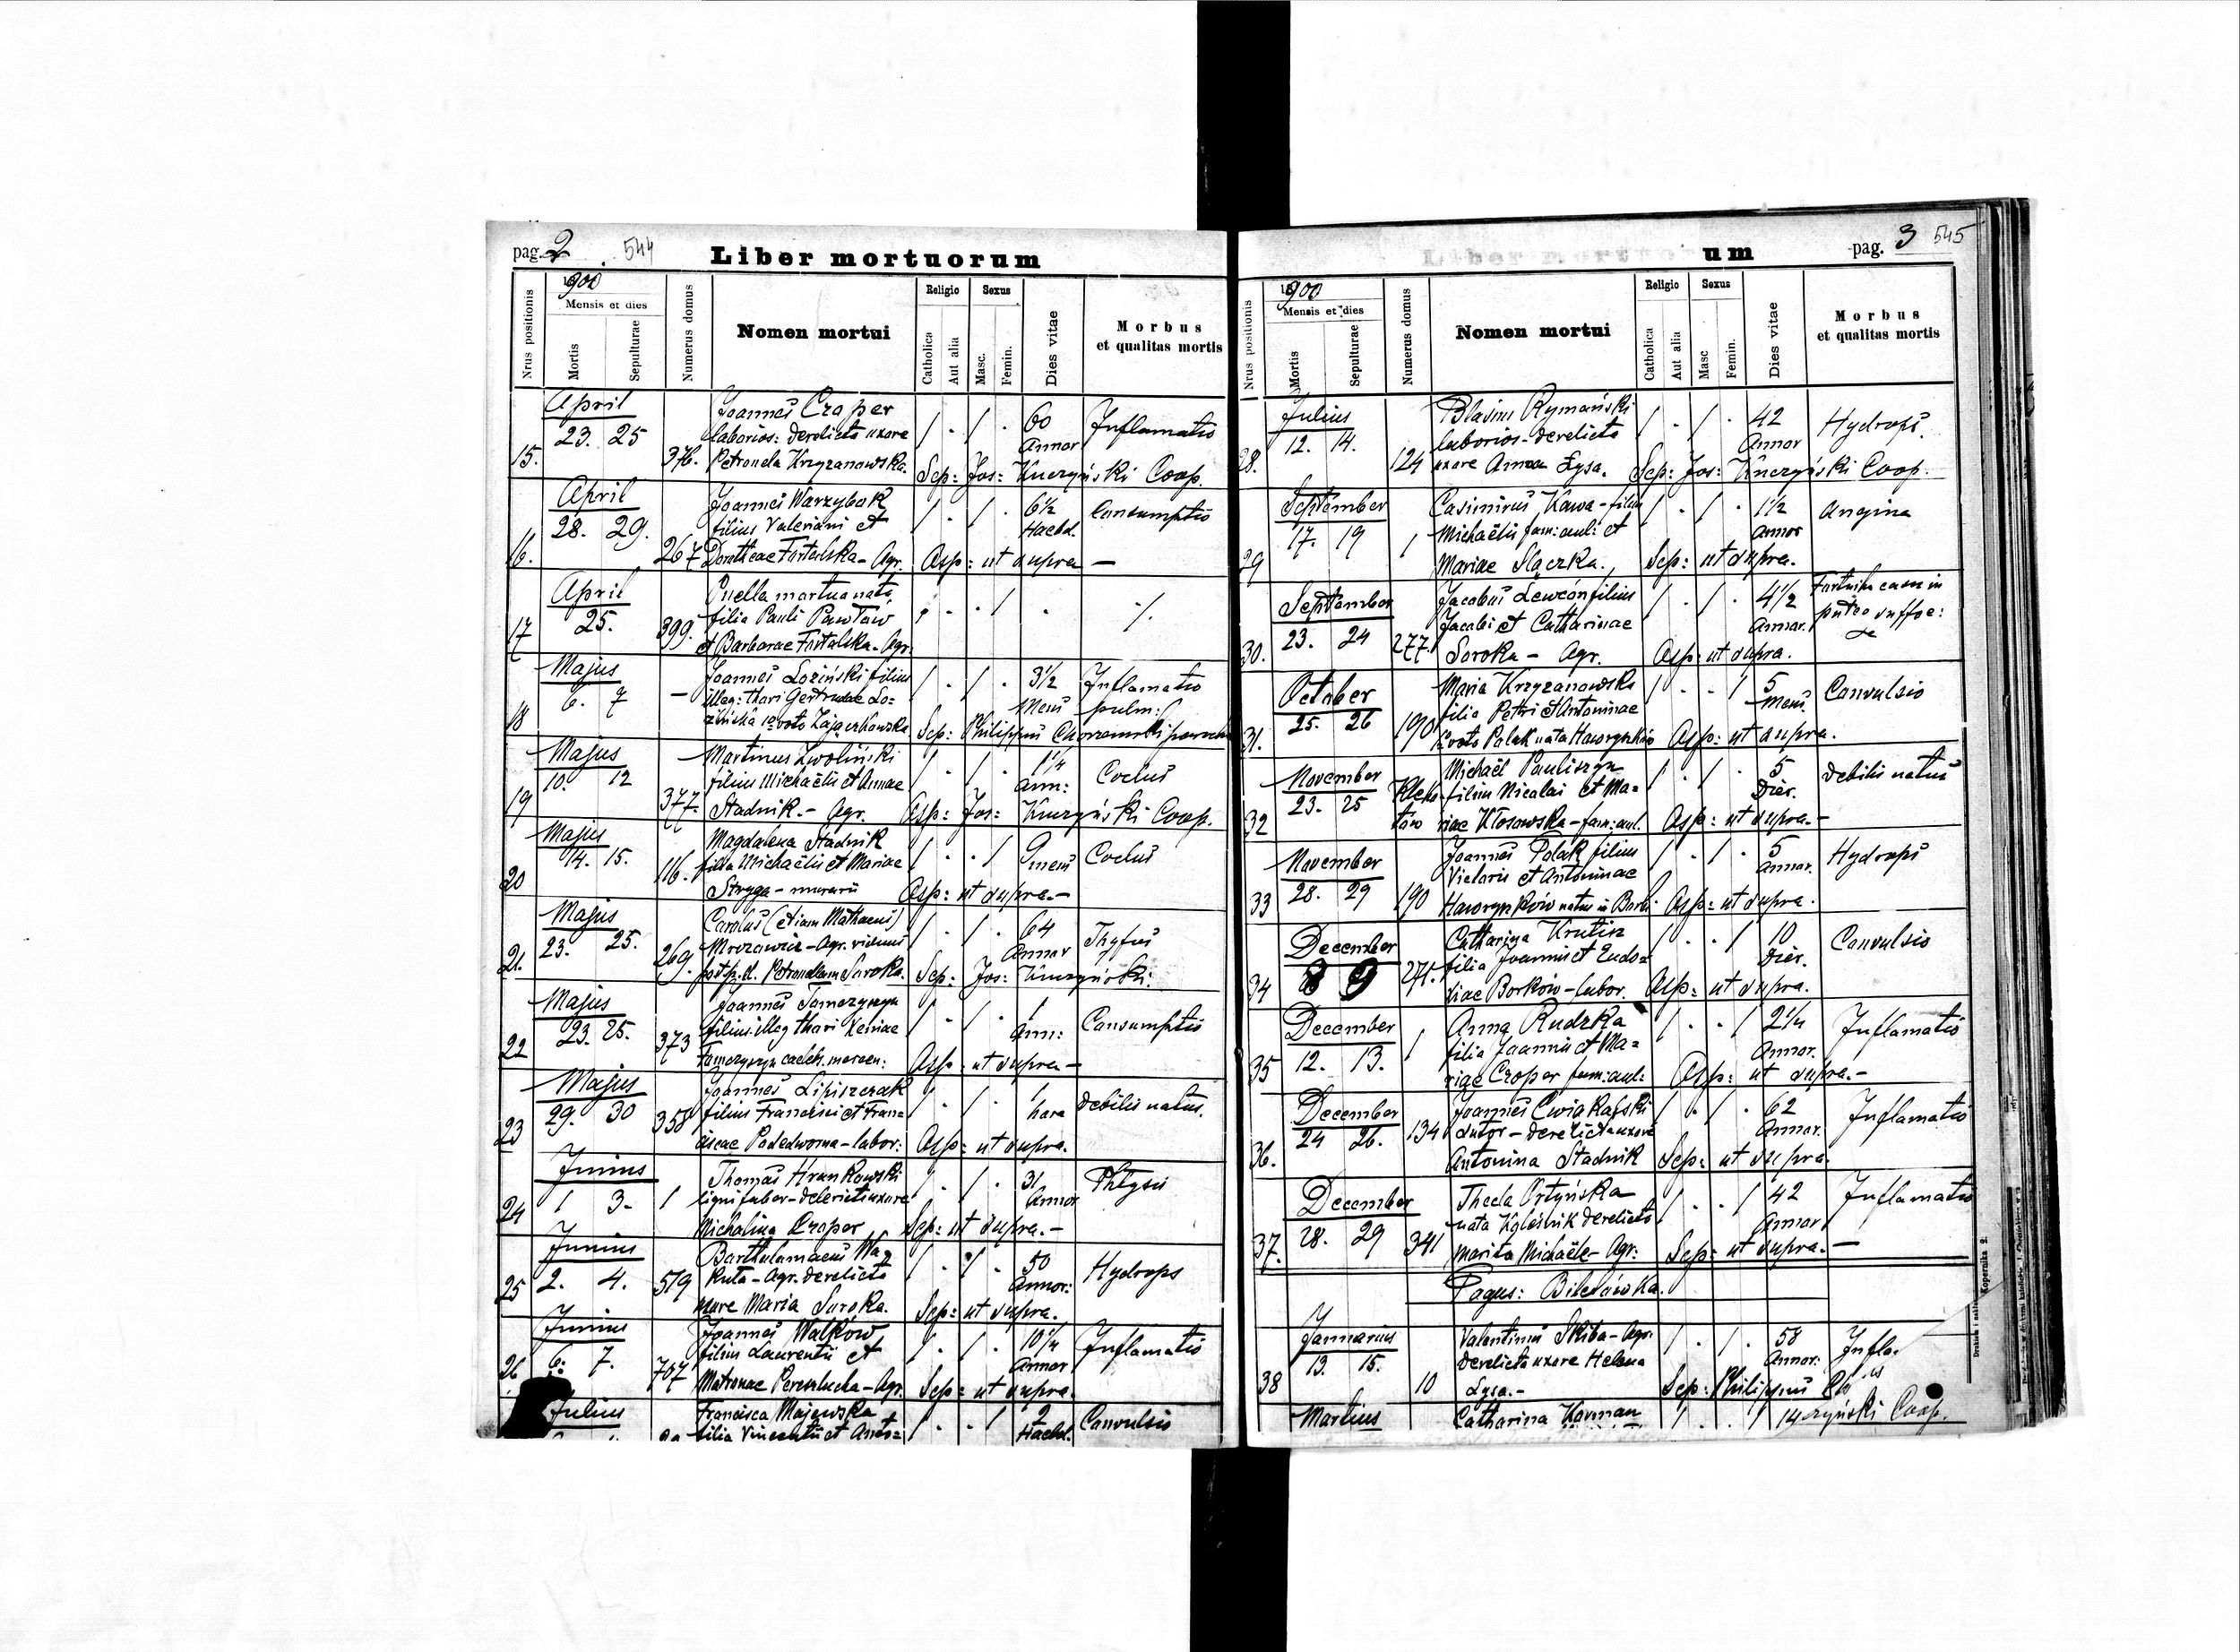 pag. 2 544
Liber mortuorum
1900
Nrus positionis
Mensis et dies
Mortis
Sepulturae
Numerus domus
Nomen mortui
Religio
Catholica
Aut alia
Sexus
Masc.
Femin.
Dies vitae
Morbus
et qualitas mortis
April
23. 25
15.
376.
Joannes Czoper
laborios: derelicta uxore
Petronela Krzyzanowska.
60
Annor
Inflamatio
Sep: Jos: Kuczyński Coop.
April
28. 29.
16.
267
Joannes Warzybok
filius Valeriani et
Dorotheae Fortalska - Agr.
6½
Hebd.
Consumptio
Asp: ut supra —
April
25.
17
399.
Puella mortua nata
filia Pauli Pawłów
et Barbarae Fortalska - Agr.
Majus
6. 7
18
—
Joannes Loziński filius
illeg: thori Gertrudae Lo=
zińska 1o voto Zajączkowska
3½
Mens
Inflamatio
pulm:
Sep: Philippus
Majus
10. 12
19
377.
Martinus Zwoliński
filius Michaëlis et Annae
Stadnik. - Agr.
1¼
Ann:
Coclus
Asp: Jos: Kuczyński Coop.
Majus
14. 15.
20
116.
Magdalena Stadnik
filia Michaëlis et Mariae
Stryga - murarii
9
mens
Coclus
Asp: ut supra. —
Majus
23. 25.
21.
269.
Carolus (etiam Mathaeus)
Mrozowicz - Agr. viduus
post p. d. Petronellam Soroka.
64
Annor
Thyfus
Sep: Jos: Kuczyński.
Majus
23. 25.
22
373
Joannes Tomczyszyn
filius illeg thori Xeniae
Tomczyszyn caeleb. mercen:
1
Ann:
Consumptio
Asp: ut supra —
Majus
29. 30
23
358
Joannes Lipiszczak
filius Francisci et Fran=
ciscae Podedworna - labor:
1
hora
debilis natus.
Asp: ut supra.
Junius
1 3.
24
1
Thomas Hrunkowski
ligni faber - derelicta uxore
Michalina Czoper
31
Annor
Phtysis
Sep: ut supra. —
Junius
2. 4.
25
519
Bartholomaeus Wa
kuta - Agr. derelicta
uxore Maria Soroka.
50
Annor:
Hydrops
Sep: ut supra.
Junius
6. 7.
26
707
Joannes Walków
filius Laurentii et
Matronae Pereszlucha - Agr.
10¼
Annor
Inflamatio
Sep: ut supra.
Julius
Francisca Majewska
filia Vincentii et Anto=
2
Hebd.
Convulsio
um
pag. 3 545
1900
Nrus positionis
Mensis et dies
Mortis
Sepulturae
Numerus domus
Nomen mortui
Religio
Catholica
Aut alia
Sexus
Masc
Femin.
Dies vitae
Morbus
et qualitas mortis
Julius
12. 14.
28.
124
Blasius Rymański
laborios - derelicta
uxore Anna Łysa.
42
Annor
Hydrops.
Sep: Jos: Kuczyński Coop.
September
17. 19
29
1
Casimirus Kawa - filius
Michaëlis fam: aul: et
Mariae Slączka.
1½
Annor
Angina
Sep: ut supra.
September
23. 24
30.
277.
Jacobus Lewcón filius
Jacobi et Catharinae
Soroka - Agr.
4½
Annor.
Fortuito casu in
puteo suffoc:
Asp: ut supra.
October
25. 26
31.
190
Maria Krzyzanowska
filia Petri et Antoninae
1o voto Polak nata Haworynków
5
Mens
Convulsio
Asp: ut supra.
November
23. 25
32
Michaël Pauliszyn
filius Nicolai et Ma=
riae Kłosowska - fam: aul.
5
Dier.
debilis natus
Asp: ut supra. -
November
28. 29
33
190
Joannes Polak filius
Victoris et Antoninae
Haworynków natus in Borki
5
Annor.
Hydrops
Asp: ut supra.
December
8 9
34
271.
Catharina Krutisz
filia Joannis et Eudo=
xiae Borków - labor.
10
Dier.
Convulsio
Asp: ut supra.
December
12. 13.
35
1
Anna Rudzka
filia Joannis et Ma=
riae Czoper fam: aul:
2¼
Annor.
Inflamatio
Asp: ut supra. -
December
24 26.
36.
134
Joannes Cwiąkalski
sutor - derelicta uxore
Antonina Stadnik
62
Annor.
Inflamatio
Sep: ut supra.
December
28. 29
37.
341
Thecla Ortyńska
nata derelicto
marito Michaële - Agr:
42
Annor
Inflamatio
Sep: ut supra. —
Pagus: Biletówka.
Januarius
13. 15.
38
10
Valentinus Skiba - Agr.
derelicta uxore Helena
Lysa. -
58
Annor:
Infla.
Sep: Philippus
Martius
Catharina Korman
14
czyński Coop.
Kopernika 2.